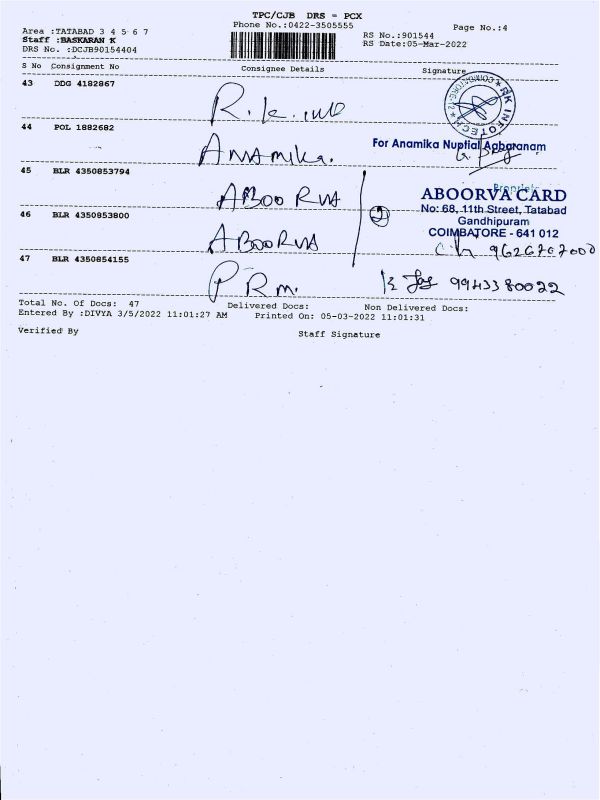 TPC/CJB DRS - PCX
Phone No.:0422-3505555
Page No.:4
Area :TATABAD 3 4 5 6 7
Staff :BASKARAN K
DRS No. :DCJB90154404
RS No.:901544
RS Date:05-Mar-2022
S No Consignment No Consignee Details Signature
43 DDG 4182867 R.K. info
RK INFOTECH
COIMBATORE-12
44 POL 1882682 Anamika.
For Anamika Nuptial
45 BLR 4350853794 ABOORVA
Proprietor
ABOORVA CARD
No: 68, 11th Street, Tatabad
Gandhipuram
COIMBATORE - 641 012
2
46 BLR 4350853800 ABOORVA
9626707000
47 BLR 4350854155 P R m. 9943380022
Total No. Of Docs: 47 Delivered Docs: Non Delivered Docs:
Entered By :DIVYA 3/5/2022 11:01:27 AM Printed On: 05-03-2022 11:01:31
Verified By Staff Signature